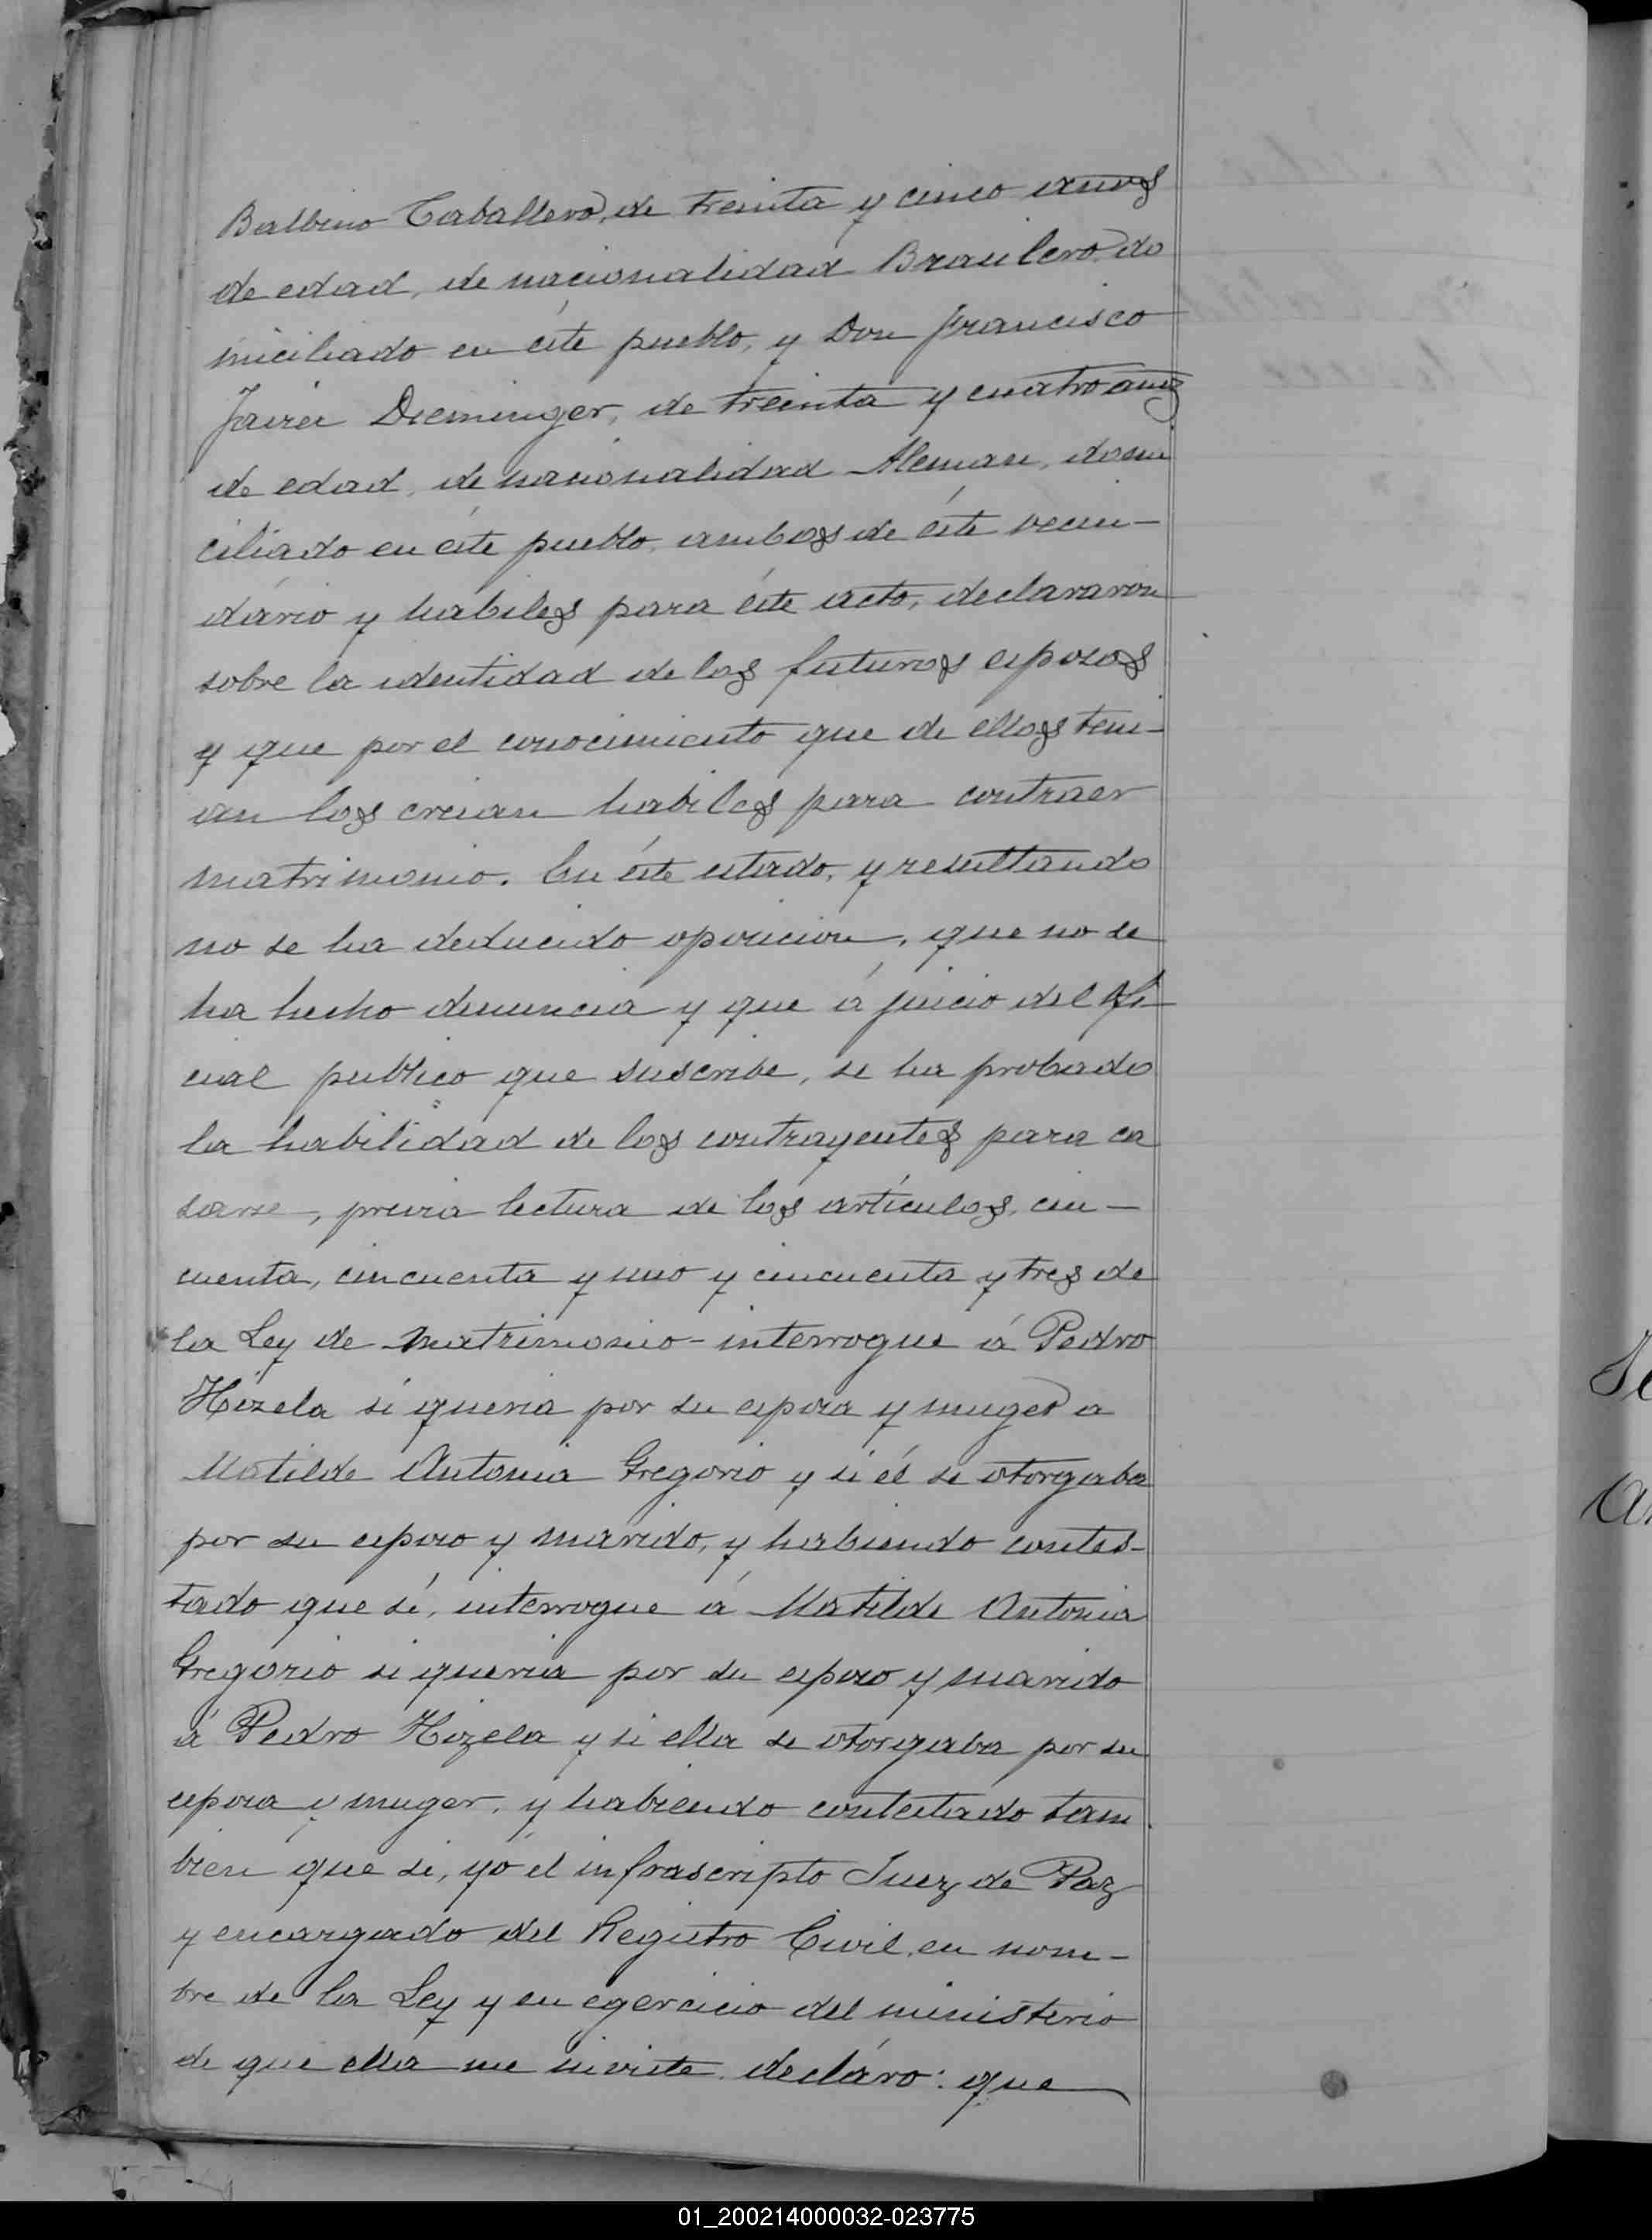 Balbino Caballero, de treinta y cinco años
de edad, de nacionalidad Brasilero, do
miciliado en éste pueblo, y Don Francisco
Javier Dreminger, de treinta y cuatro años
de edad, de nacionalidad Aleman, domi
ciliado en éste pueblo, ambos de éste vecin-
dário y hábiles para éste acto, declararon
sobre la identidad de los futuros esposos
y que por el conocimiento que de ellos teni-
an los creian habiles para contraer
matrimonio. En éste estado, y resultando
no se ha deducido oposicion, que no se
ha hecho denuncia y que á juicio del Ofi-
cial publico que suscribe, se ha probado
la habilidad de los contrayentes para ca
sarse, previa lectura de los artículos, cin-
cuenta, cincuenta y uno y cincuenta y tres de
la Ley de Matrimonio - interrogue á Pedro
Hizela si queria por su esposa y muger a
Matilde Antonia Gregorio y si él se otorgaba
por su esposo y marido, y habiendo contes-
tado que sí, interrogue á Matilde Antonia
Gregorio si queria por su esposo y marido
á Pedro Hizela y si ella se otorgaba por su
esposa y muger, y habiendo contestado tam
bien que si, yó el infrascripto Juez de Paz
y encargado del Registro Civil, en nom-
bre de la Ley y en egercicio del ministerio
de que ella me inviste, decláro: que
01_200214000032-023775